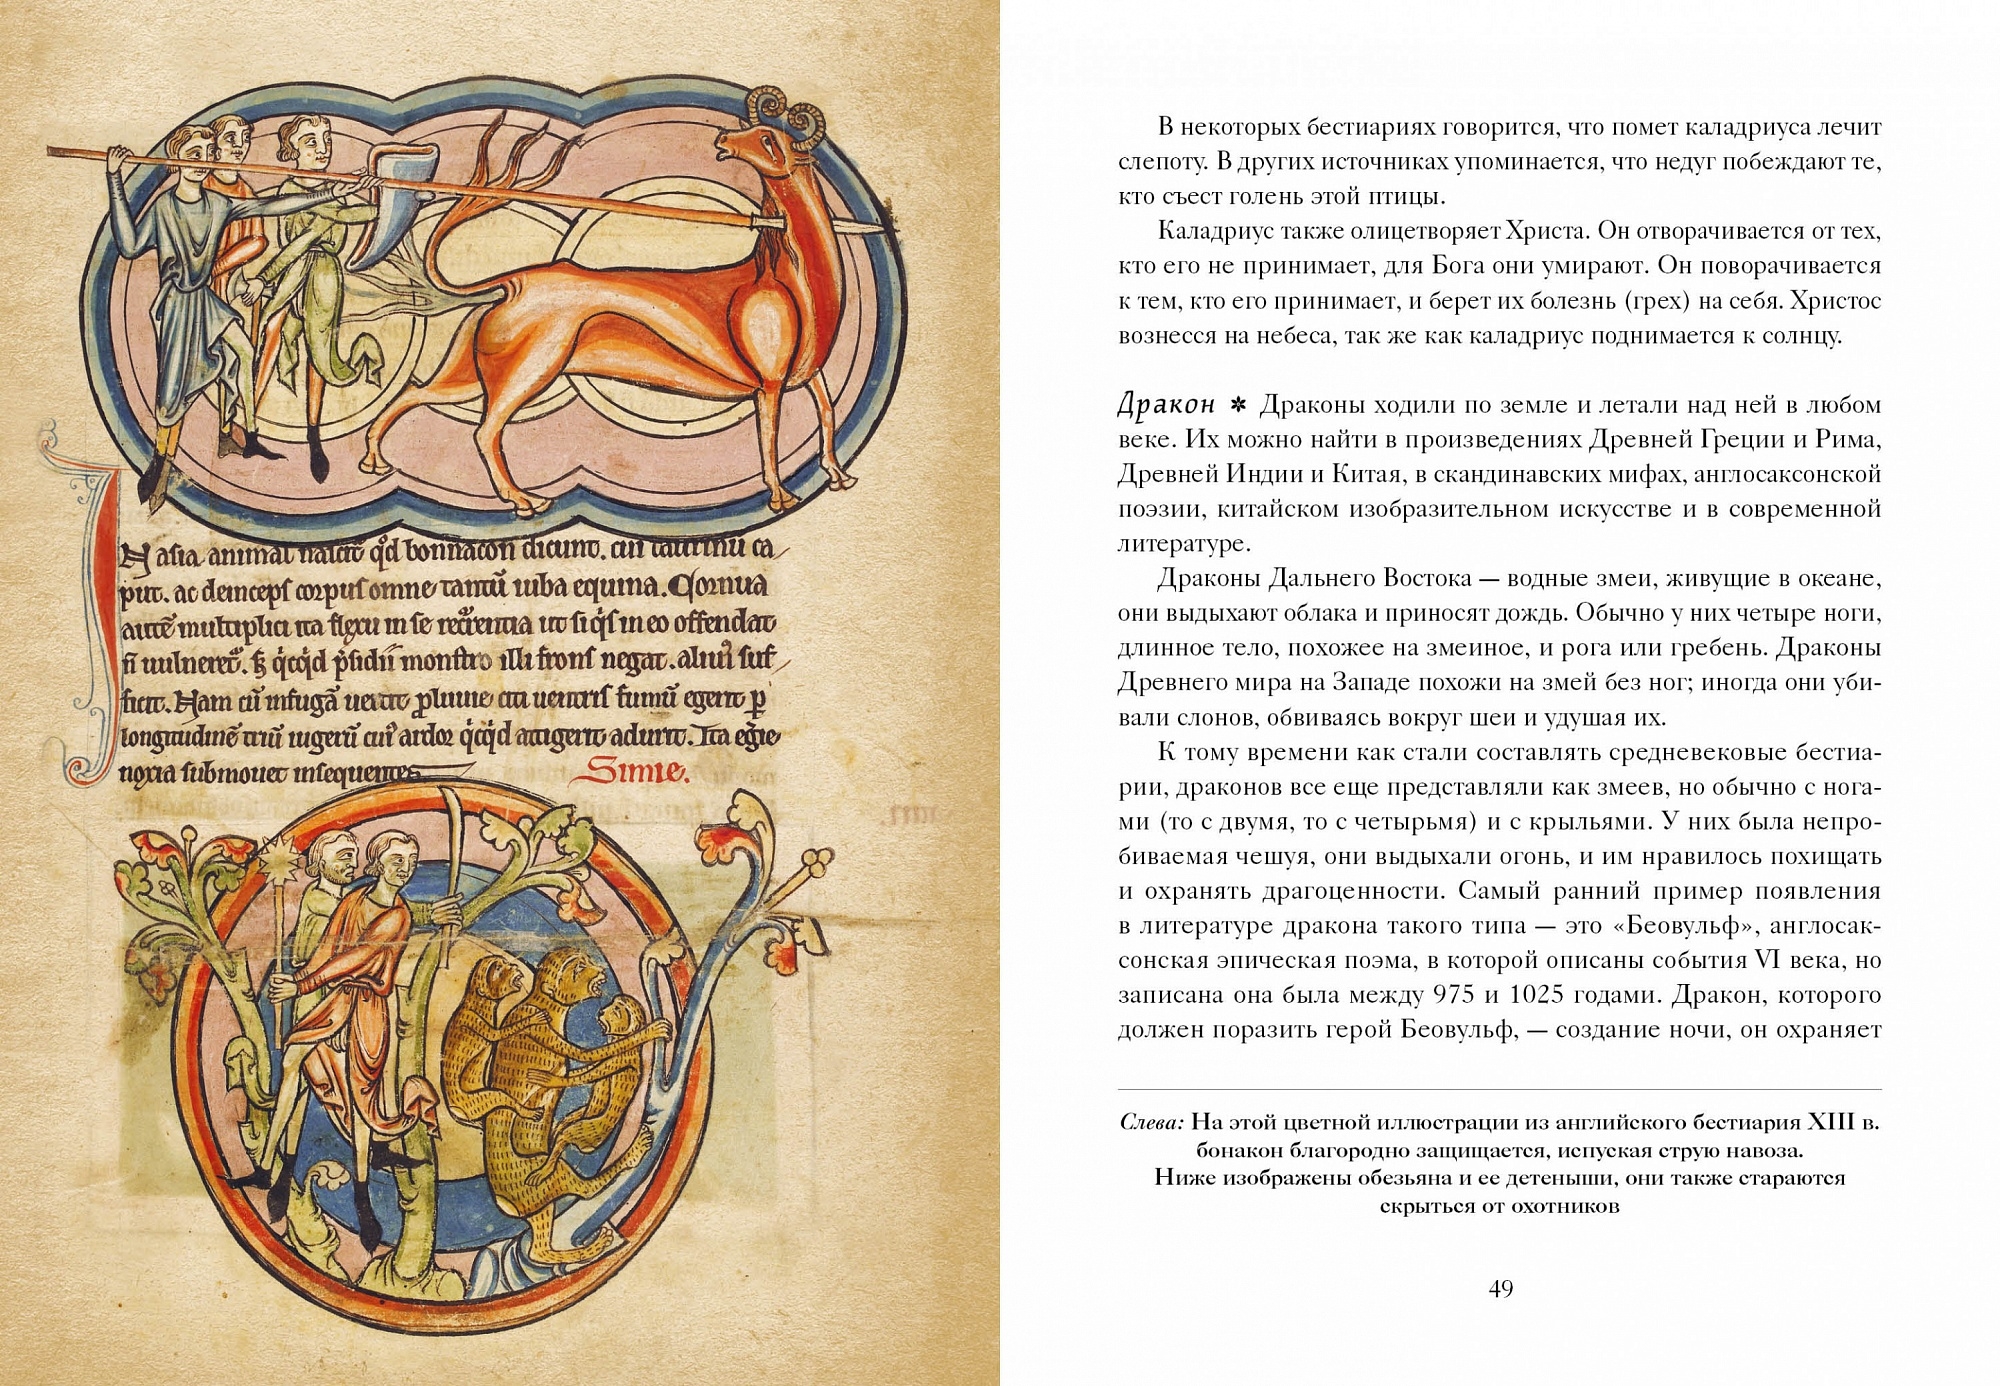 In asia animal nascit̉ qd̓ bonnacon dicunt. cui taurinū ca/
put. ac deinceps corpus omne tantū iuba equina. Cornua
autē multiplici ita flexu in se recurrentia ut si qͥs in eo offendat
n̄ uulneret̉. Sꝫ qͥcqͥd p̄sidii monstro illi frons negat. aluus suf/
ficit. Nam cū in fugā uertit̉ ꝓluuie citi uentris fumū egerit ꝑ
longitudinē triū iugerū cuiꝰ ardor qͥcqͥd attigerit adurit. Ita egͥe
noxia submouet insequentes
Simie.
В некоторых бестиариях говорится, что помет каладриуса лечит
слепоту. В других источниках упоминается, что недуг побеждают те,
кто съест голень этой птицы.
Каладриус также олицетворяет Христа. Он отворачивается от тех,
кто его не принимает, для Бога они умирают. Он поворачивается
к тем, кто его принимает, и берет их болезнь (грех) на себя. Христос
вознесся на небеса, так же как каладриус поднимается к солнцу.
Дракон ✲ Драконы ходили по земле и летали над ней в любом
веке. Их можно найти в произведениях Древней Греции и Рима,
Древней Индии и Китая, в скандинавских мифах, англосаксонской
поэзии, китайском изобразительном искусстве и в современной
литературе.
Драконы Дальнего Востока — водные змеи, живущие в океане,
они выдыхают облака и приносят дождь. Обычно у них четыре ноги,
длинное тело, похожее на змеиное, и рога или гребень. Драконы
Древнего мира на Западе похожи на змей без ног; иногда они уби-
вали слонов, обвиваясь вокруг шеи и удушая их.
К тому времени как стали составлять средневековые бестиа-
рии, драконов все еще представляли как змеев, но обычно с нога-
ми (то с двумя, то с четырьмя) и с крыльями. У них была непро-
биваемая чешуя, они выдыхали огонь, и им нравилось похищать
и охранять драгоценности. Самый ранний пример появления
в литературе дракона такого типа — это «Беовульф», англосак-
сонская эпическая поэма, в которой описаны события VI века, но
записана она была между 975 и 1025 годами. Дракон, которого
должен поразить герой Беовульф, — создание ночи, он охраняет
Слева: На этой цветной иллюстрации из английского бестиария XIII в.
бонакон благородно защищается, испуская струю навоза.
Ниже изображены обезьяна и ее детеныши, они также стараются
скрыться от охотников
49